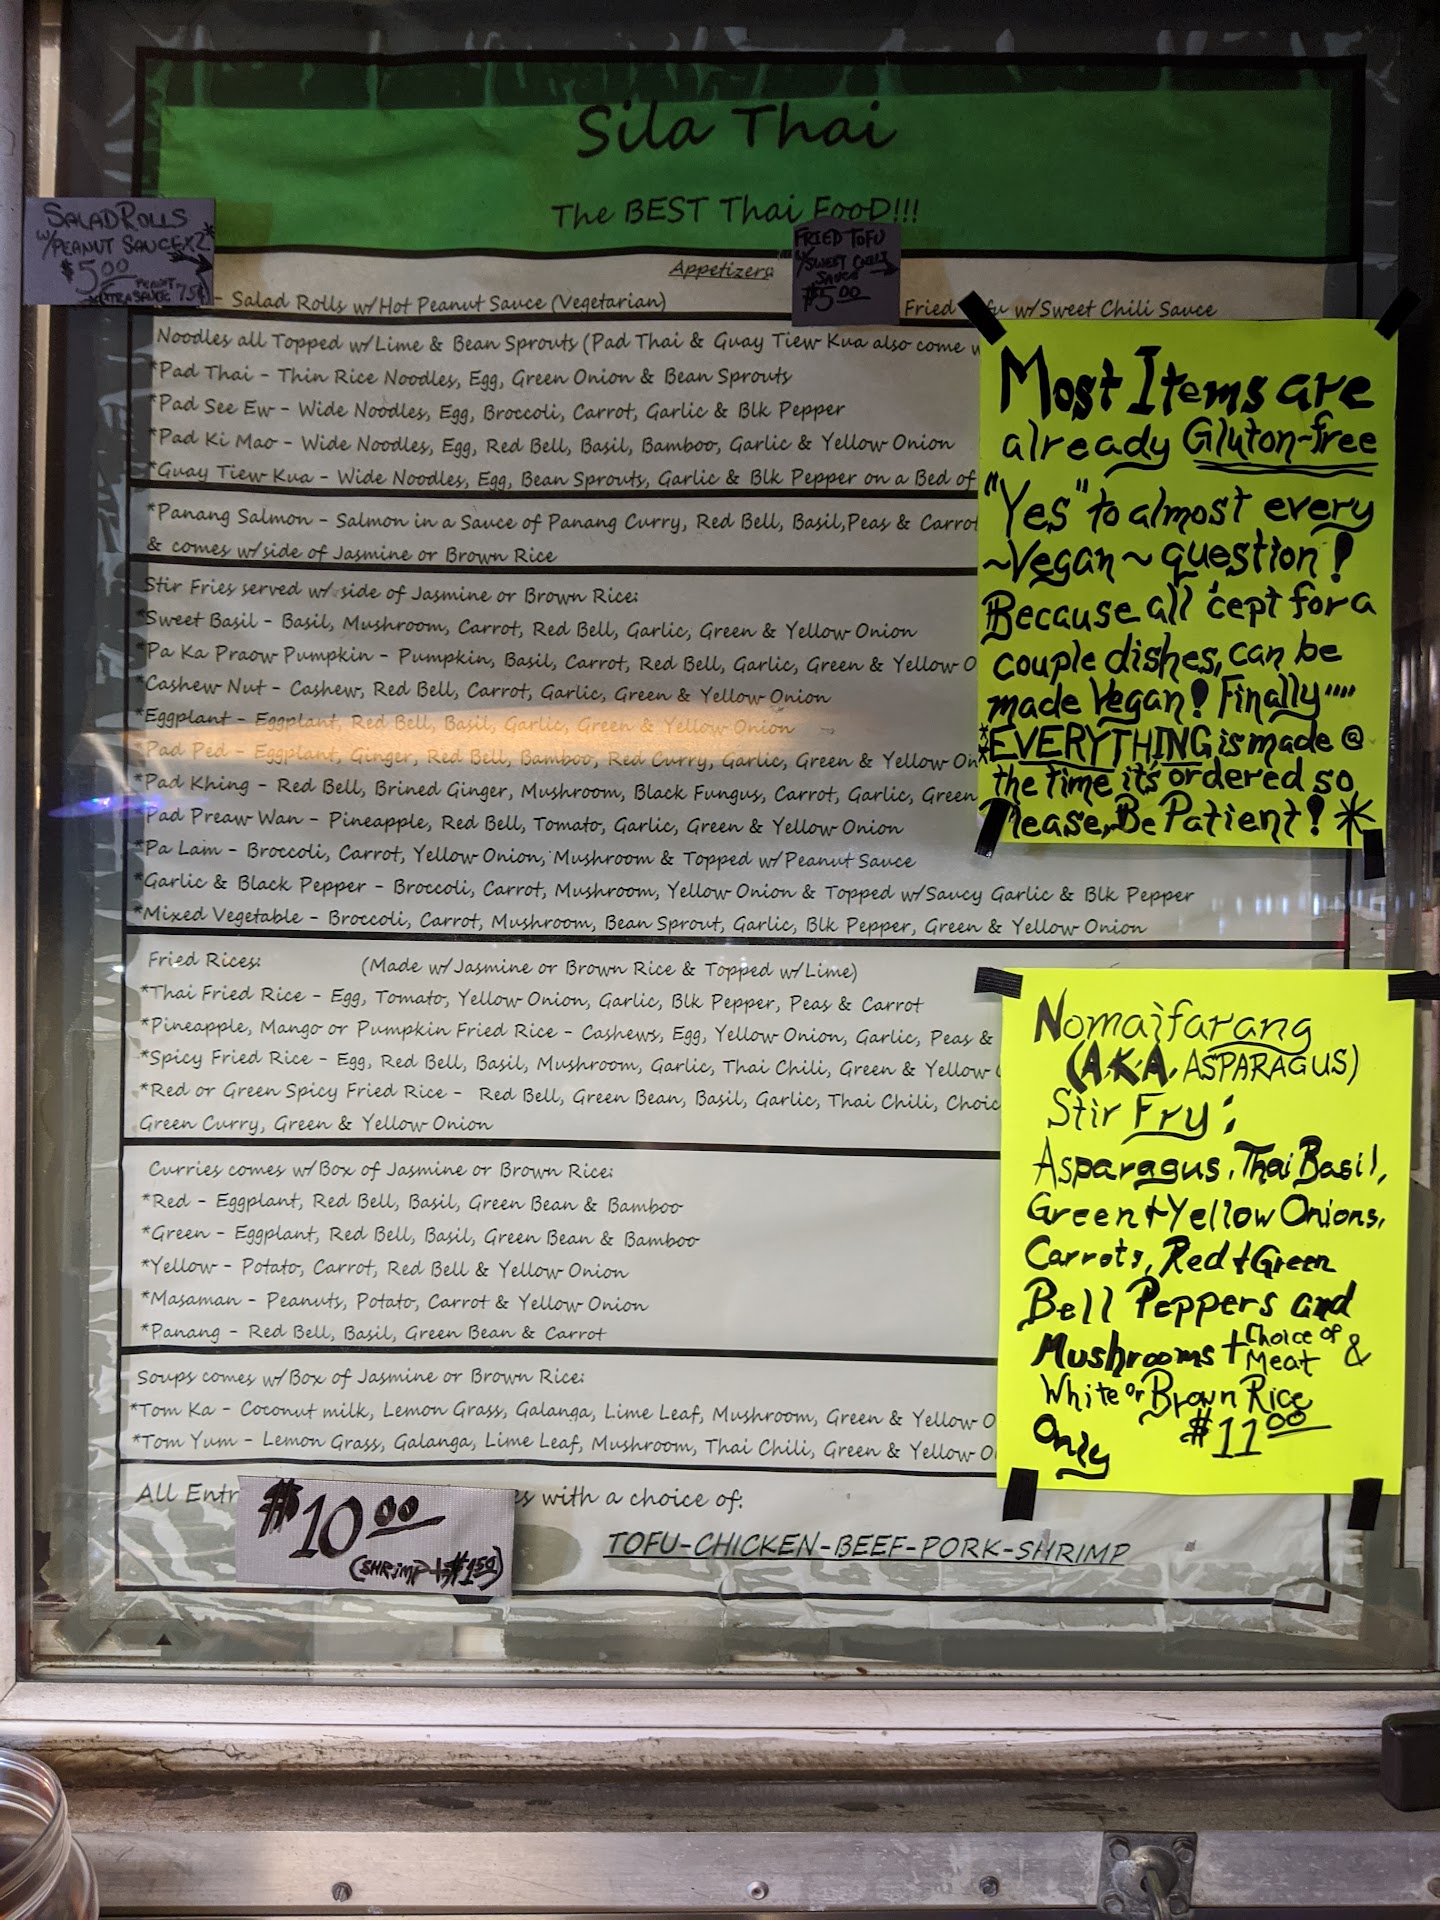 Sila Thai
The BEST Thai FooD!!!
SALAD ROLLS
W/PEANUT SAUCE X2
$5.00
PEANUT
EXTRA SAUCE 75¢
FRIED TOFU
W/SWEET CHILI
SAUCE
$5.00
Appetizers
- Salad Rolls w/Hot Peanut Sauce (Vegetarian)
Fried Tofu w/Sweet Chili Sauce
Noodles all Topped w/Lime & Bean Sprouts (Pad Thai & Guay Tiew Kua also come w
*Pad Thai - Thin Rice Noodles, Egg, Green Onion & Bean Sprouts
*Pad See Ew - Wide Noodles, Egg, Broccoli, Carrot, Garlic & Blk Pepper
*Pad Ki Mao - Wide Noodles, Egg, Red Bell, Basil, Bamboo, Garlic & Yellow Onion
*Guay Tiew Kua - Wide Noodles, Egg, Bean Sprouts, Garlic & Blk Pepper on a Bed of
*Panang Salmon - Salmon in a Sauce of Panang Curry, Red Bell, Basil,Peas & Carrot
& comes w/side of Jasmine or Brown Rice
Stir Fries served w/ side of Jasmine or Brown Rice:
*Sweet Basil - Basil, Mushroom, Carrot, Red Bell, Garlic, Green & Yellow Onion
*Pa Ka Praow Pumpkin - Pumpkin, Basil, Carrot, Red Bell, Garlic, Green & Yellow O
*Cashew Nut - Cashew, Red Bell, Carrot, Garlic, Green & Yellow Onion
*Eggplant - Eggplant, Red Bell, Basil, Garlic, Green & Yellow Onion
*Pad Ped - Eggplant, Ginger, Red Bell, Bamboo, Red Curry, Garlic, Green & Yellow On
*Pad Khing - Red Bell, Brined Ginger, Mushroom, Black Fungus, Carrot, Garlic, Green
*Pad Preaw Wan - Pineapple, Red Bell, Tomato, Garlic, Green & Yellow Onion
*Pa Lam - Broccoli, Carrot, Yellow Onion, Mushroom & Topped w/Peanut Sauce
*Garlic & Black Pepper - Broccoli, Carrot, Mushroom, Yellow Onion & Topped w/Saucy Garlic & Blk Pepper
*Mixed Vegetable - Broccoli, Carrot, Mushroom, Bean Sprout, Garlic, Blk Pepper, Green & Yellow Onion
Fried Rices: (Made w/Jasmine or Brown Rice & Topped w/Lime)
*Thai Fried Rice - Egg, Tomato, Yellow Onion, Garlic, Blk Pepper, Peas & Carrot
*Pineapple, Mango or Pumpkin Fried Rice - Cashews, Egg, Yellow Onion, Garlic, Peas &
*Spicy Fried Rice - Egg, Red Bell, Basil, Mushroom, Garlic, Thai Chili, Green & Yellow
*Red or Green Spicy Fried Rice - Red Bell, Green Bean, Basil, Garlic, Thai Chili, Choic
Green Curry, Green & Yellow Onion
Curries comes w/Box of Jasmine or Brown Rice:
*Red - Eggplant, Red Bell, Basil, Green Bean & Bamboo
*Green - Eggplant, Red Bell, Basil, Green Bean & Bamboo
*Yellow - Potato, Carrot, Red Bell & Yellow Onion
*Masaman - Peanuts, Potato, Carrot & Yellow Onion
*Panang - Red Bell, Basil, Green Bean & Carrot
Soups comes w/Box of Jasmine or Brown Rice:
*Tom Ka - Coconut milk, Lemon Grass, Galanga, Lime Leaf, Mushroom, Green & Yellow O
*Tom Yum - Lemon Grass, Galanga, Lime Leaf, Mushroom, Thai Chili, Green & Yellow O
All Entr
s with a choice of:
$10.00
(SHRIMP + $1.50)
TOFU-CHICKEN-BEEF-PORK-SHRIMP
Most Items are
already Gluton-free
"Yes" to almost every
~Vegan~ question!
Because all 'cept for a
couple dishes, can be
made Vegan! Finally""
*EVERYTHING is made @
the time its ordered so,
Please, Be Patient! *
Nomaifarang
(A.K.A. ASPARAGUS)
Stir Fry:
Asparagus, Thai Basil,
Green + Yellow Onions,
Carrots, Red + Green
Bell Peppers and
Mushrooms + Choice of Meat &
White or Brown Rice
Only $11.00